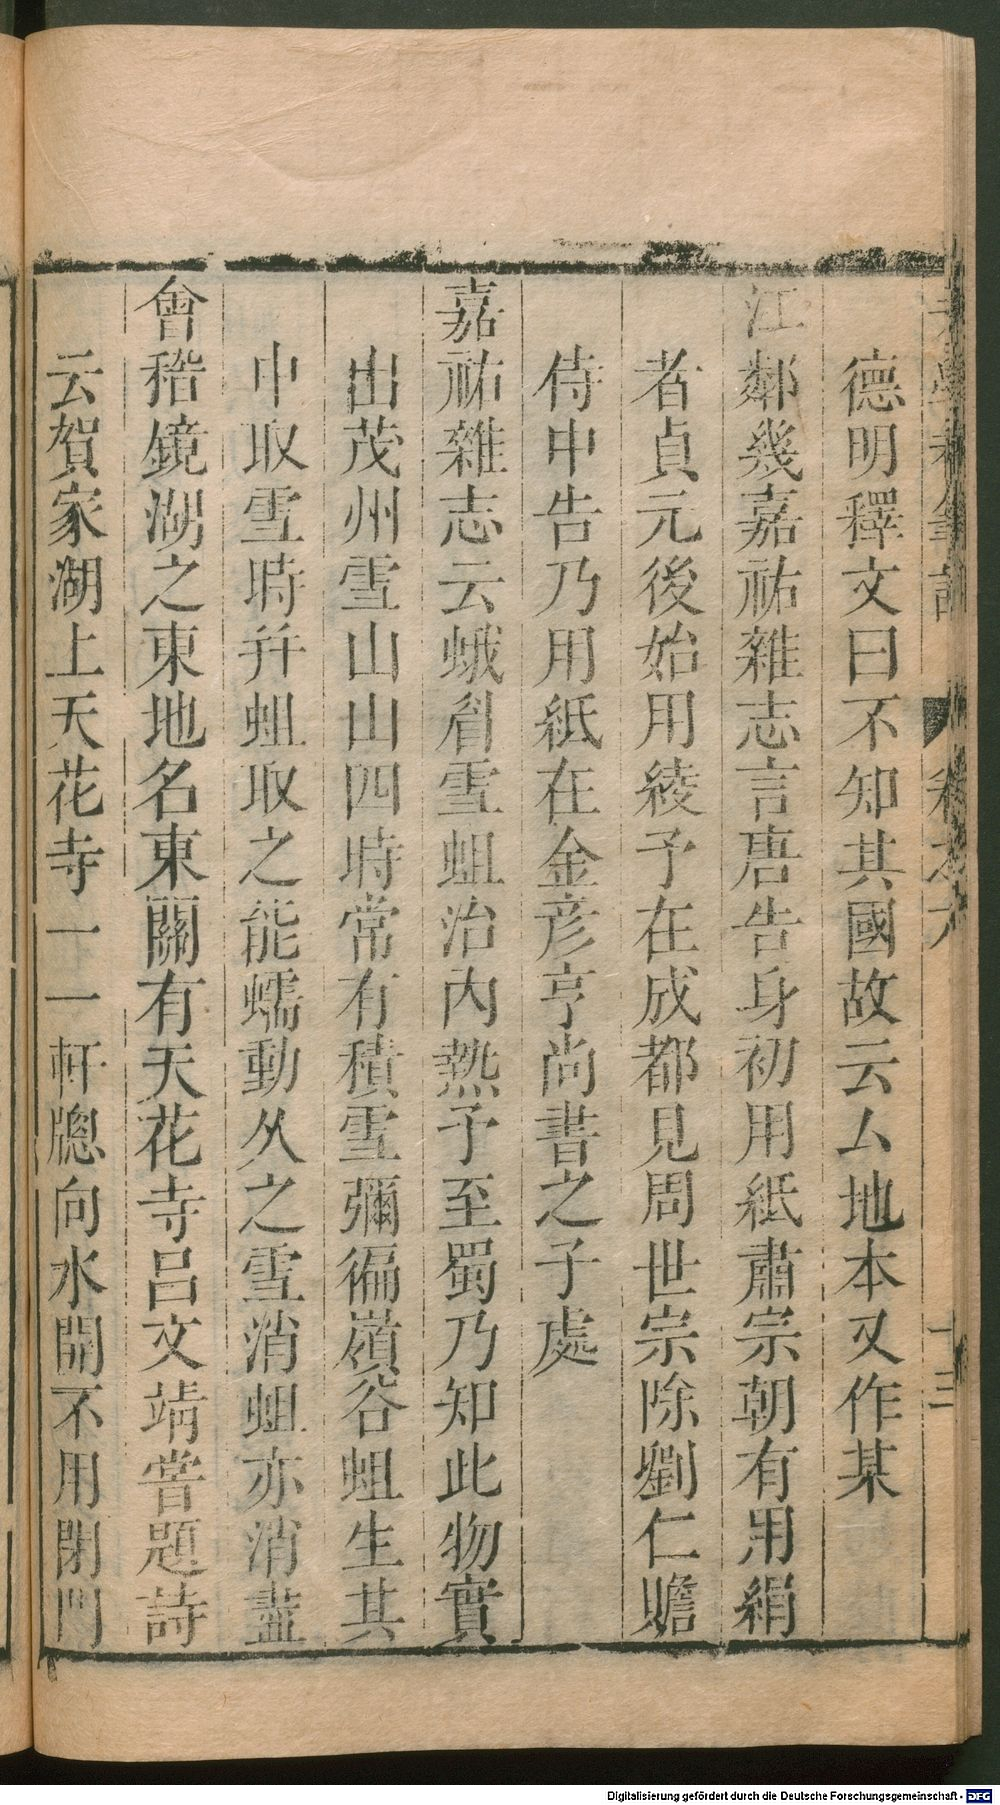 德明釋文曰不知其國故云厶地本又作某
江鄰幾嘉祐雜志言唐告身初用紙肅宗朝有用絹
者貞元後始用綾予在成都見周世宗除劉仁贍
侍中告乃用紙在金彥亨尚書之子處
嘉祐雜志云蛾眉雪蛆治內熱予至蜀乃知此物實
出茂州雪山山四時常有積雪彌徧嶺谷蛆生其
中取雪時并蛆取之能蠕動久之雪消蛆亦消盡
會稽鏡湖之東地名東關有天花寺呂文靖嘗題詩
云賀家湖上天花寺一一軒牕向水開不用閉門
Digitalisierung gefördert durch die Deutsche Forschungsgemeinschaft - DFG